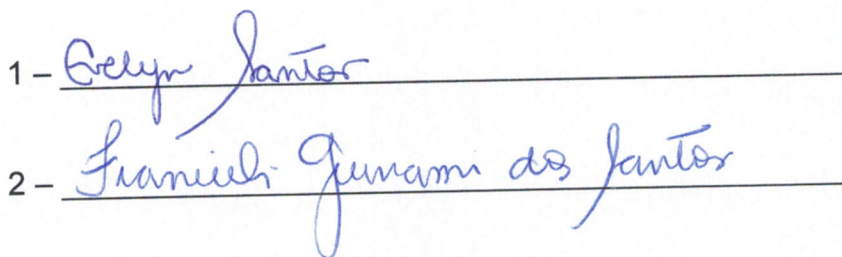 1 – Evelyn Santos
2 – Franieli dos Santos